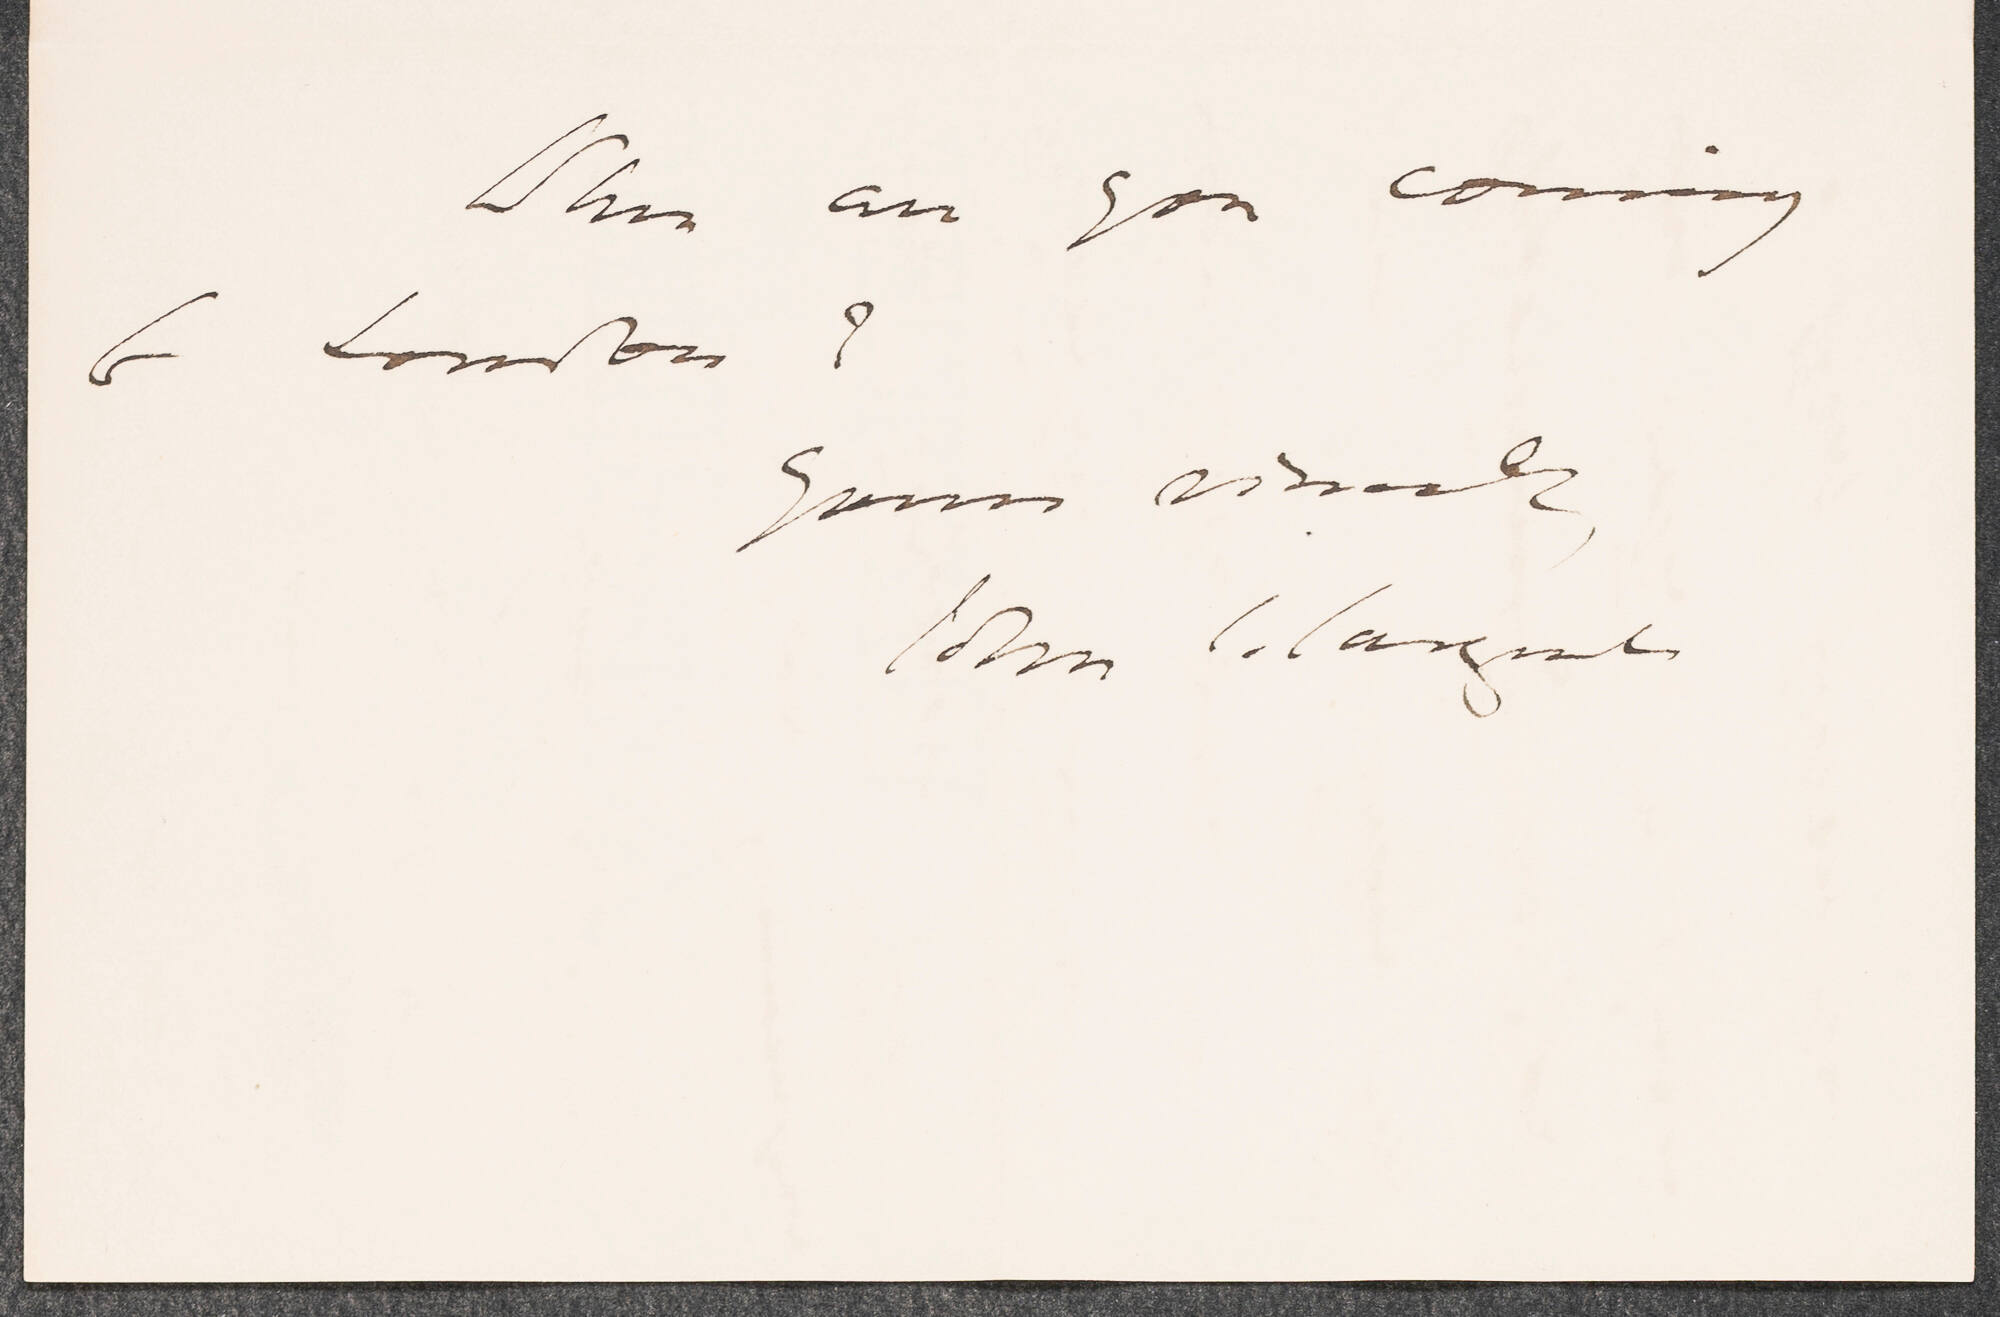 When are you coming
to London?
Yours sincerely
John S. Sargent